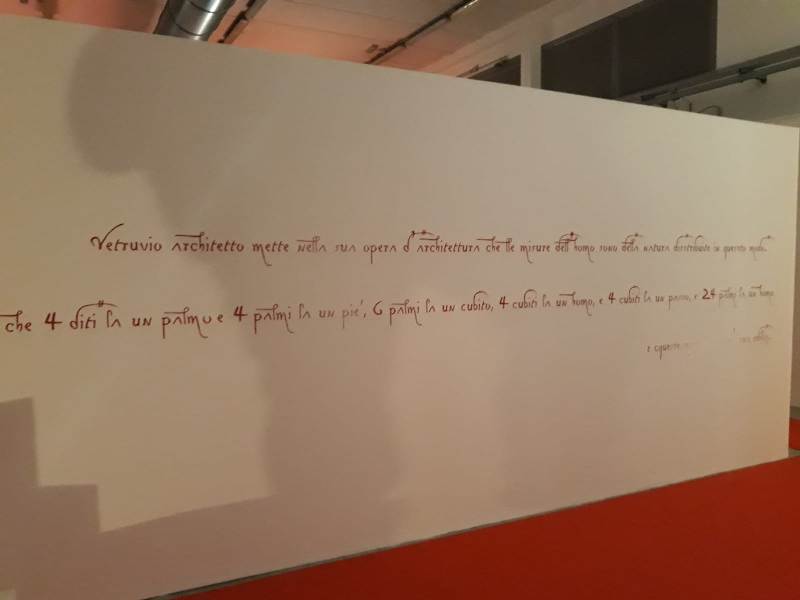 Vetruvio architetto mette nella sua opera d'architettura che lle misure dell'homo sono della natura disstribuite in quessto modo.
che 4 diti fa un palmo e 4 palmi fa un pie', 6 palmi fa un cubito, 4 cubiti fa un homo, e 4 cubiti fa un passo, e 24 palmi fa un homo